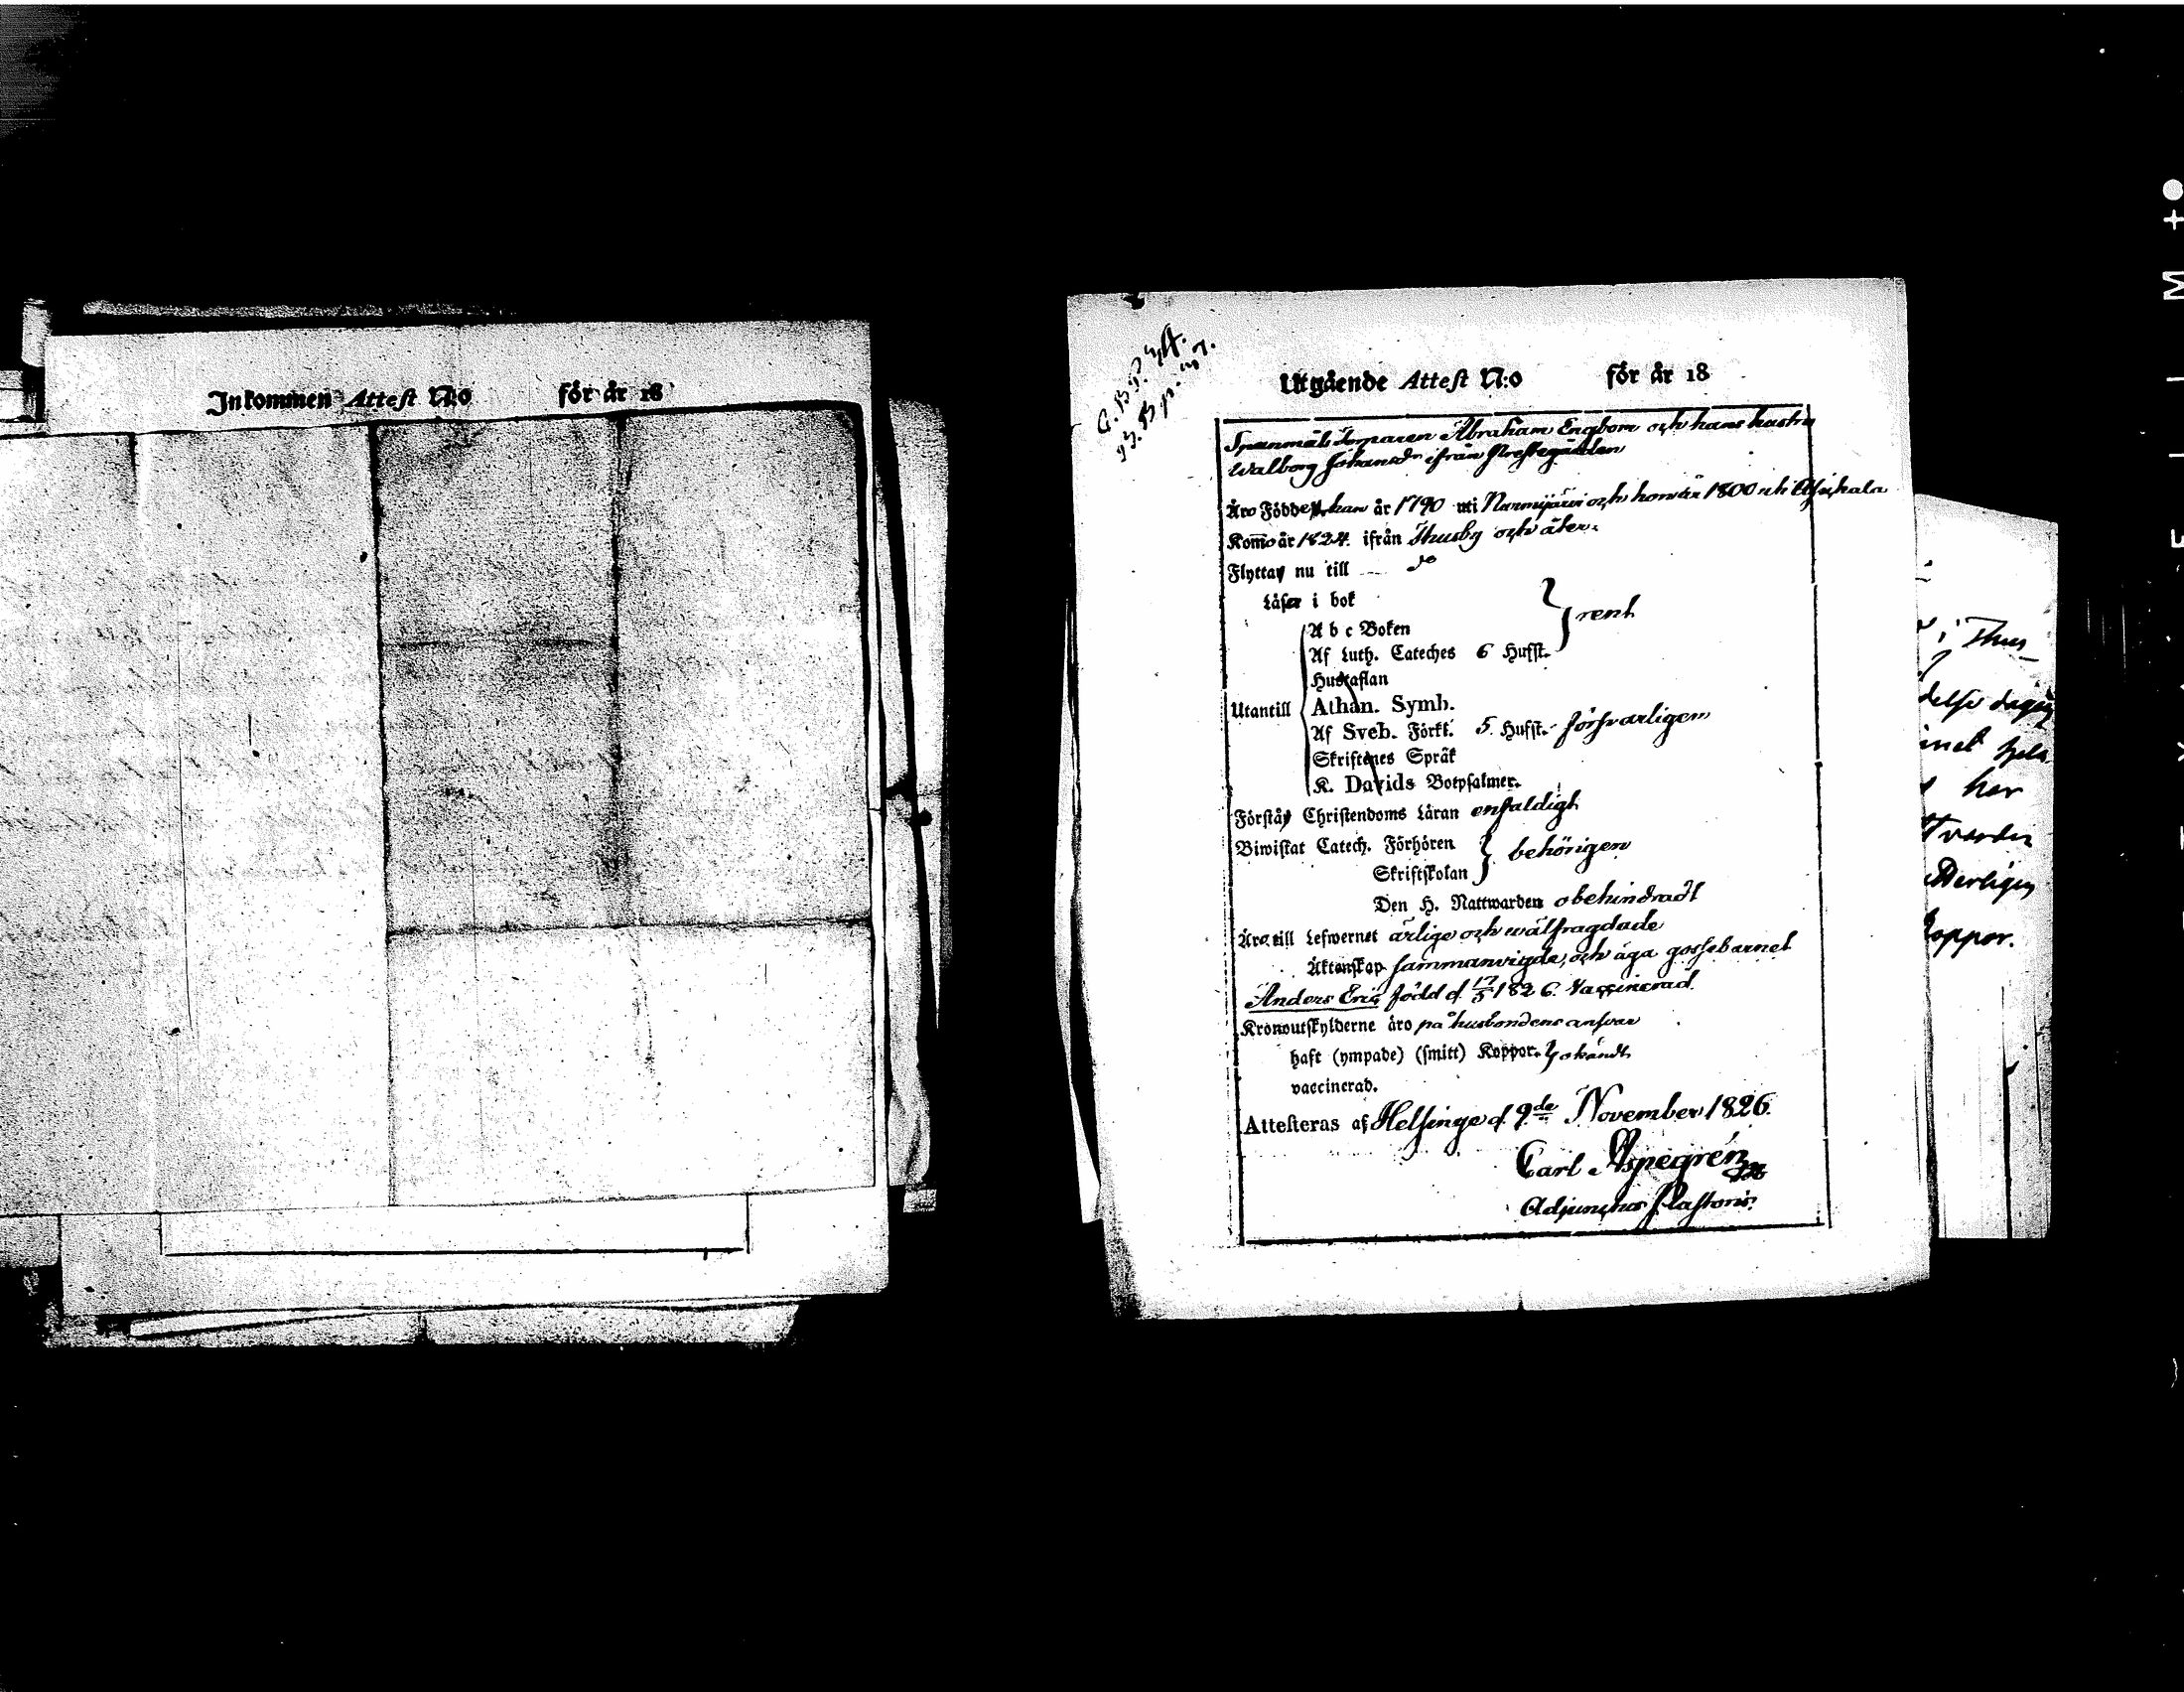 Inkommen Attest N:o för år 18
Utgående Attest N:o för år 18
Spanmåls Torparen Abraham Engbom och hans hustru
Walborg Johansdr ifrån Prestegården
Äro Födde han år 1790 uti Nurmijärvi och hon år 1800 uti
Kom̄o år 1824. ifrån Thusby och åter
Flyttar nu till do
Läser i bok
A b c Boken
Af Luth. Cateches 6 Hufst.
} rent
Hustaflan
Utantill
Athan. Symb.
Af Sveb. Förkl. 5 Hufst. försvarligen
Skriftenes Språk
K. Davids Botpsalmer.
Förstår Christendoms Läran enfaldigt
Biwistat Catech. Förhören
Skriftskolan
} behörigen
Den H. Nattwarden obehindradt
Äro till Lefwernet ärlige och wälfragdade
Äktenskap sammanvigde, och äga gossebarnet
Anders Eric född d. 17/5 1826. Vaccinerad.
Kronoutskylderne äro på husbondens ansvar
haft (ympade) (smitt) Koppor. } okändt
vaccinerad.
Attesteras af Helsinge d. 9de November 1826.
Carl Aspegrén
Adjunctus Pastoris.
i Thus
delse
har
koppor.